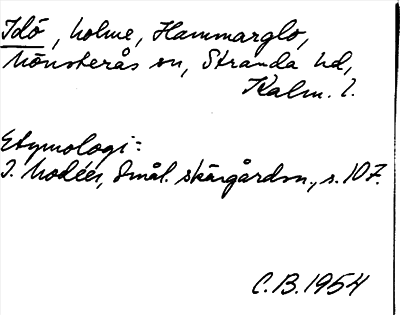 Idö, holme, Hammarglo,
Mönsterås sn, Stranda hd,
Kalm. l.
Etymologi:
I. Modéer, Smål. skärgårdsn., s. 107.
C.B. 1954